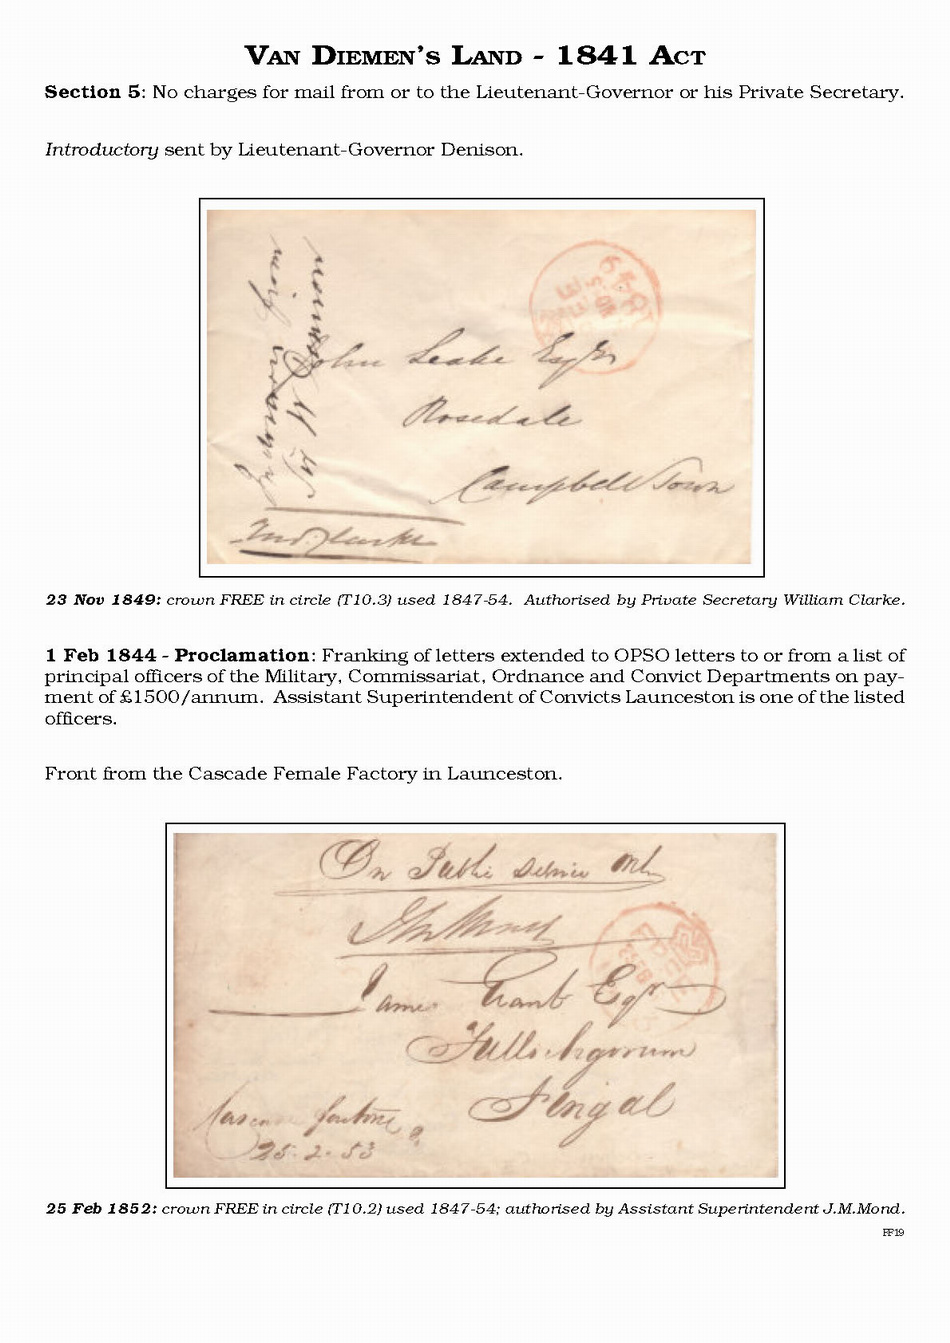 VAN DIEMEN'S LAND - 1841 ACT
Section 5: No charges for mail from or to the Lieutenant-Governor or his Private Secretary.
Introductory sent by Lieutenant-Governor Denison.
John Leake Esqre
Rosedale
Campbell Town
23 Nov 1849: crown FREE in circle (T10.3) used 1847-54. Authorised by Private Secretary William Clarke.
1 Feb 1844 - Proclamation: Franking of letters extended to OPSO letters to or from a list of
principal officers of the Military, Commissariat, Ordnance and Convict Departments on pay-
ment of £1500/annum. Assistant Superintendent of Convicts Launceston is one of the listed
officers.
Front from the Cascade Female Factory in Launceston.
On Public Service Only
James Grant Esqr
Tullochgorum
Fingal
25.2.53
25 Feb 1852: crown FREE in circle (T10.2) used 1847-54; authorised by Assistant Superintendent J.M.Mond.
FF19